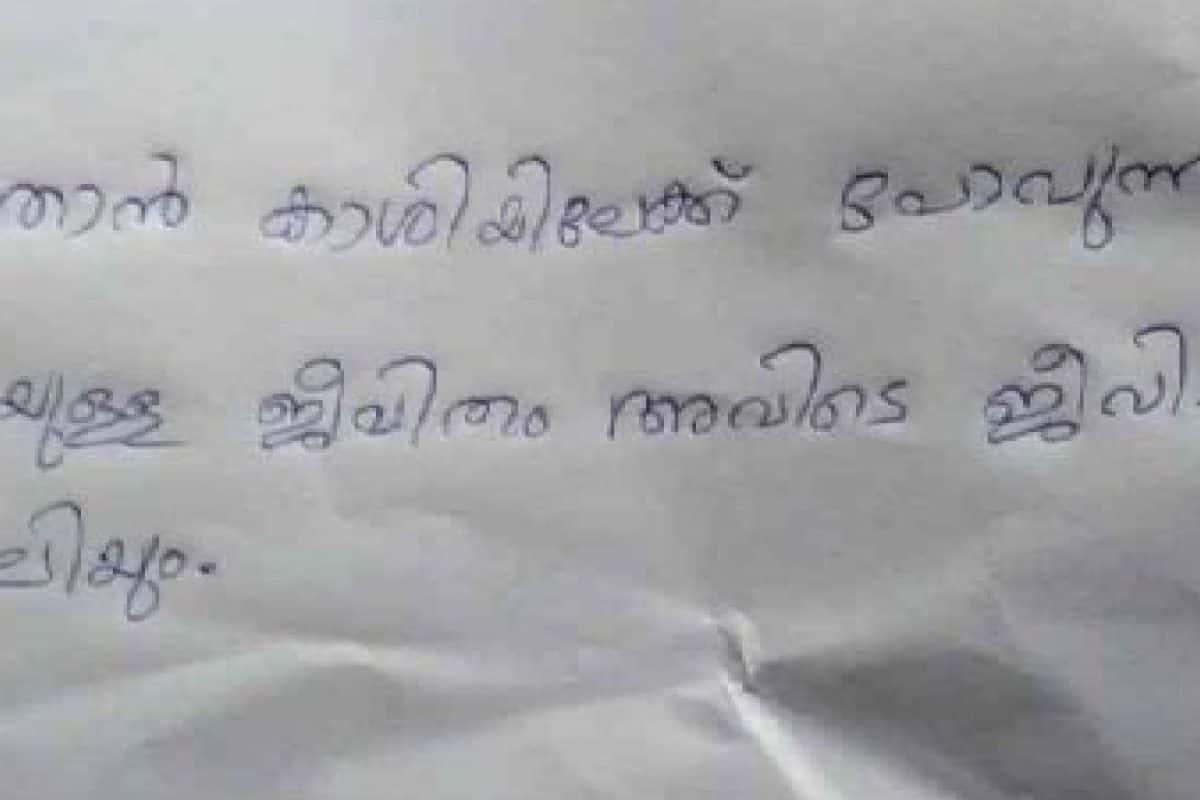 ഞാൻ കാശിയിലേക്ക് പോവുന്ന
യുള്ള ജീവിതം അവിടെ ജീവി
ലിയും.